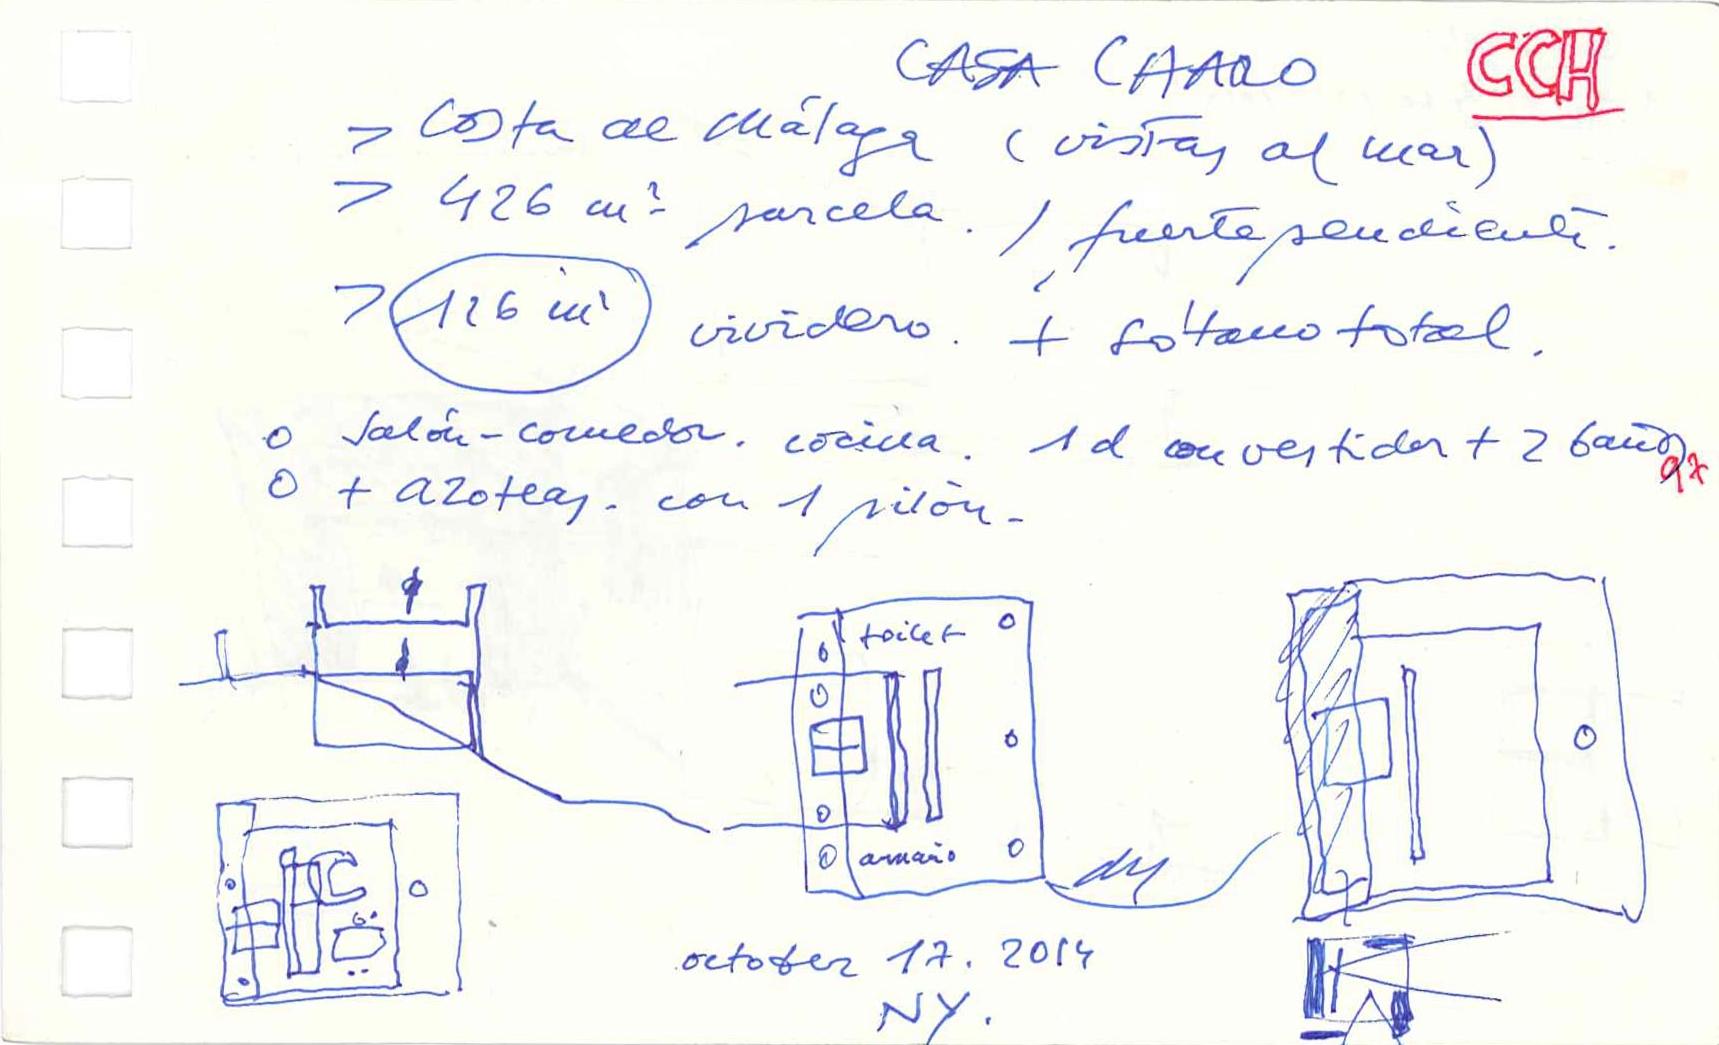 CASA CHARO CCH
> Costa de Málaga (vistas al mar)
> 426 m² parcela. / fuerte pendiente.
> 126 m² vividero. + sótano total.
o salón-comedor. cocina. 1 d con vestidor + 2 baños
o + azoteas. con 1 pilón.
toilet
armario
october 17. 2014
NY.